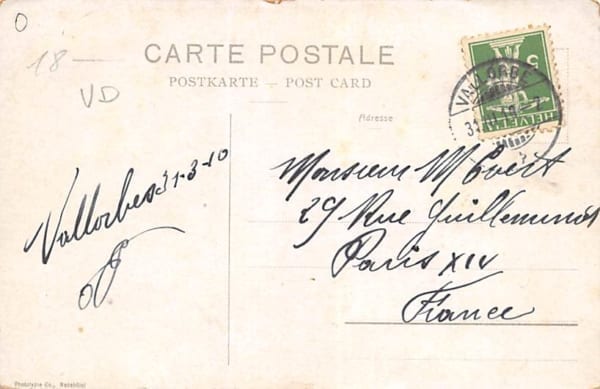 O
18
VD
CARTE POSTALE
POSTKARTE – POST CARD
Adresse
VALLORBE
HELVETIA
5
Vallorbes 31-3-10
Monsieur M Evert
29 Rue Guilleminot
Paris XIV
France
Phototypie Co., Neuchâtel